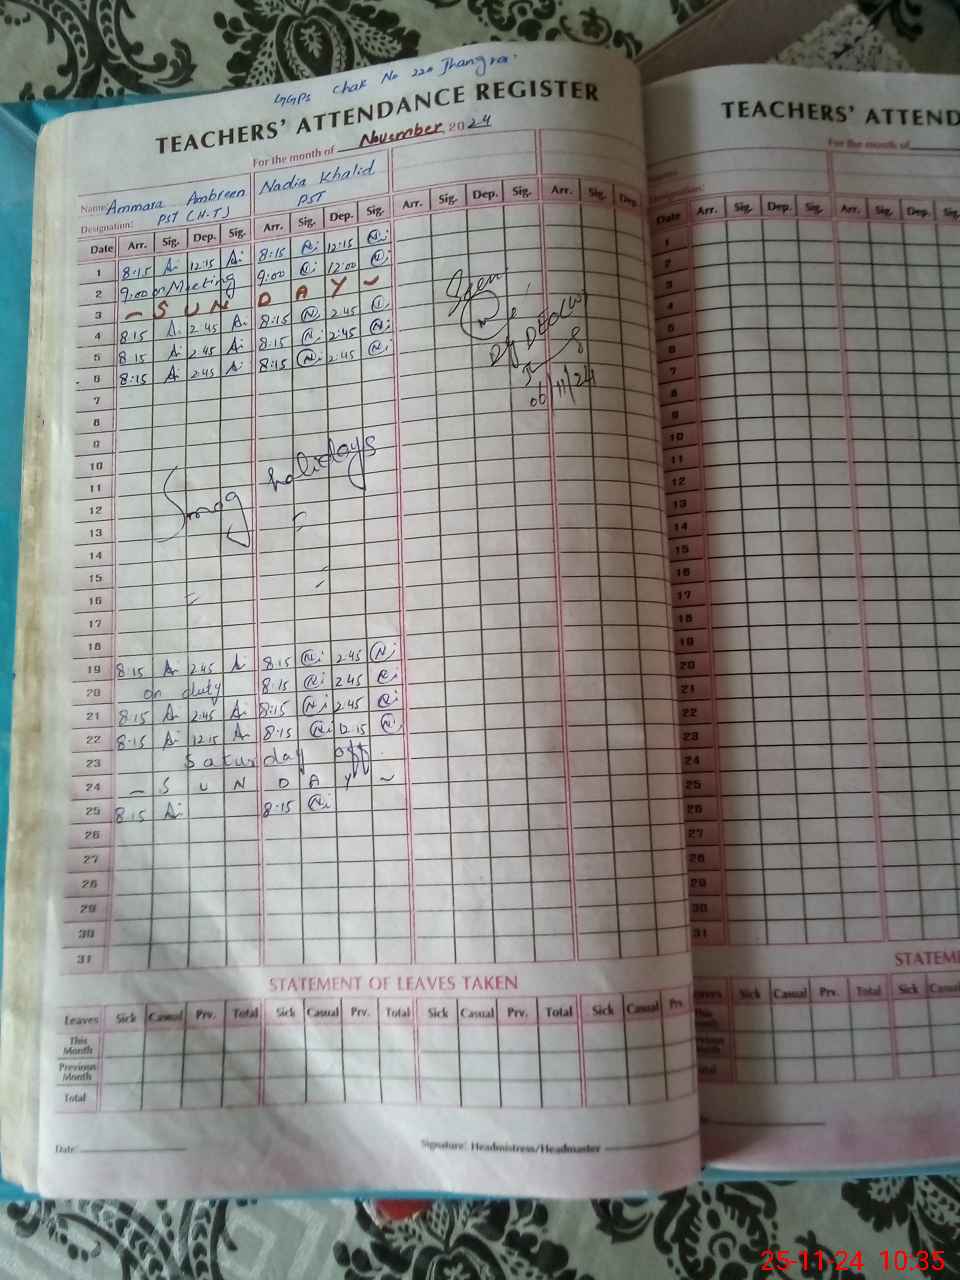 GGPS Chak No 220 Jhangra.
TEACHERS' ATTENDANCE REGISTER
For the month of November 2024
Name: Ammara Ambreen Nadia Khalid
Designation: PST (H.T) PST
Date Arr. Sig. Dep. Sig. Arr. Sig. Dep. Sig. Arr. Sig. Dep. Sig. Arr. Sig. Dep.
1 8:15 A 12:15 A 8:15 Ni 12:15 Ni
2 9:00 on Meeting 9:00 Ni 12:00 Ni
3 - S U N D A Y ~
4 8:15 A 2:45 A 8:15 N 2:45 N
5 8:15 A 2:45 A 8:15 Ni 2:45 Ni
6 8:15 A 2:45 A 8:15 Ni 2:45 Ni
Seen
06/11/24
7
8
9
10
11
Smog holidays
12
13 =
14
15 =
16 =
17
18
19 8:15 A 2:45 A 8:15 Ni 2:45 Ni
20 on duty 8:15 Ni 2:45 Ni
21 8:15 A 2:45 A 8:15 Ni 2:45 Ni
22 8:15 A 12:15 A 8:15 Ni 12:15 Ni
23 Saturday off
24 - S U N D A Y ~
25 8:15 A 8:15 Ni
26
27
28
29
30
31
STATEMENT OF LEAVES TAKEN
Leaves Sick Casual Prv. Total Sick Casual Prv. Total Sick Casual Prv. Total Sick Casual Prv.
This Month
Previous Month
Total
Date: Signature: Headmistress/Headmaster
TEACHERS' ATTEND
For the month of
Date Arr. Sig. Dep. Sig. Arr. Sig. Dep. Sig.
1
2
3
4
5
6
7
8
9
10
11
12
13
14
15
16
17
18
19
20
21
22
23
24
25
26
27
28
29
30
31
STATEME
Sick Casual Prv. Total Sick Casual
25-11-24 10:35